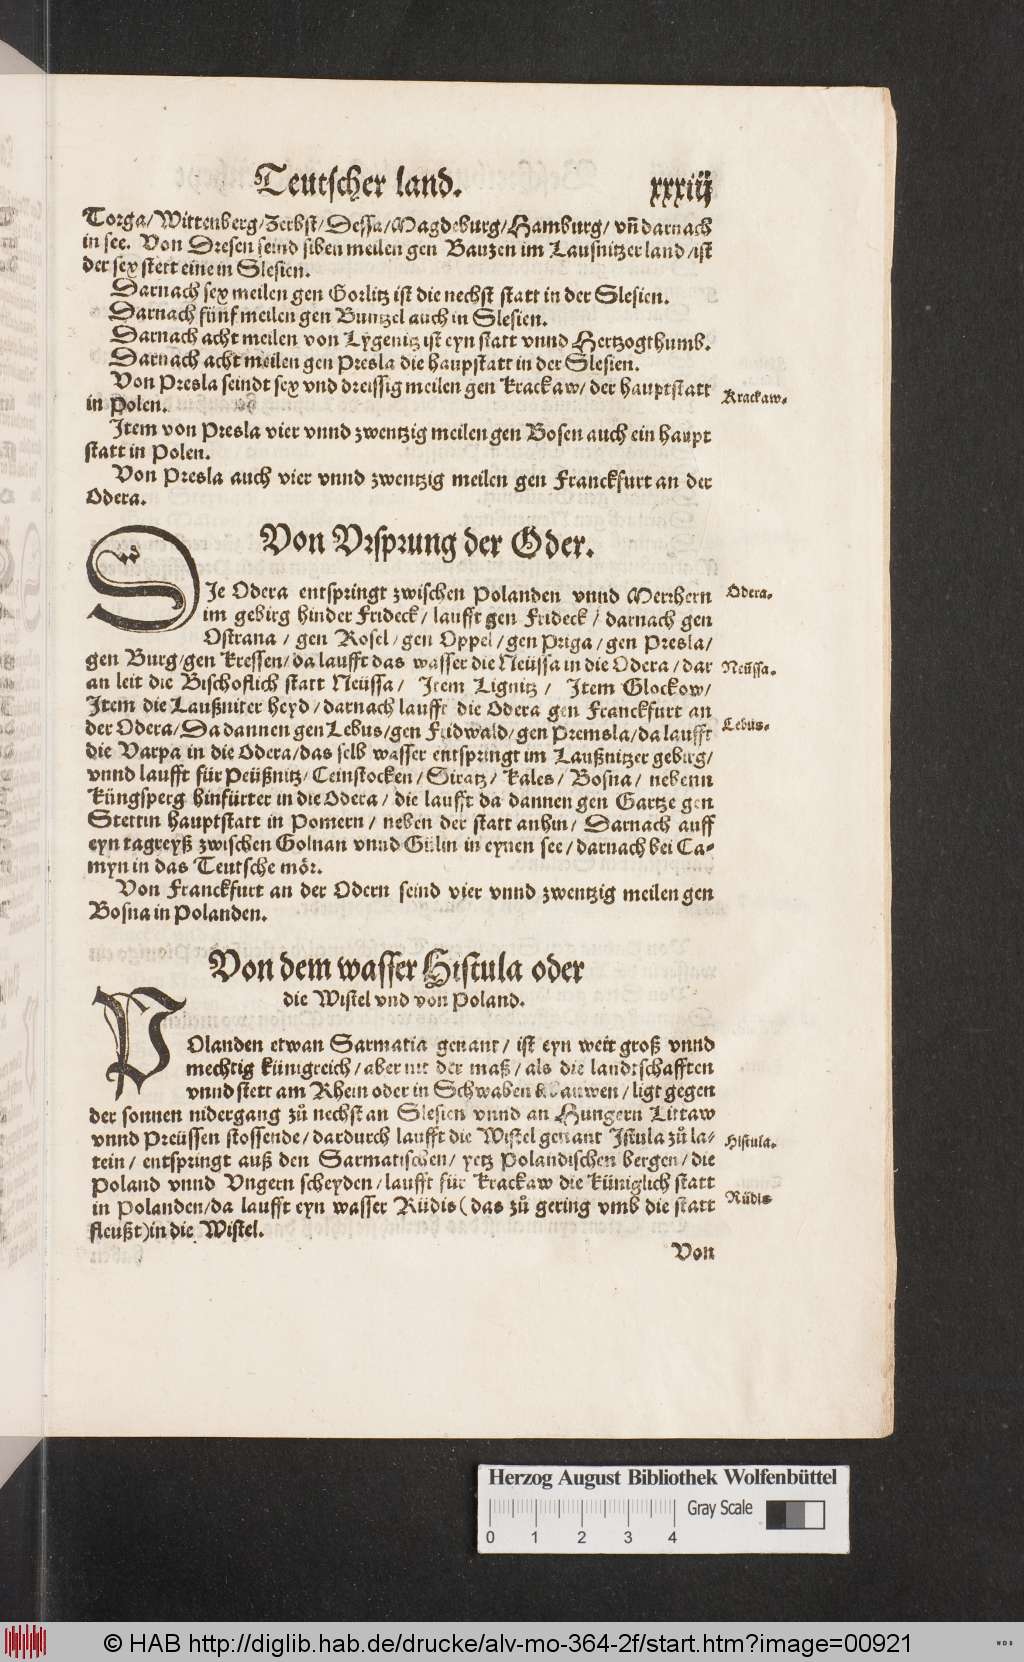 Teutscher land. xxxiij
Torga/Wittenberg/Zerbst/Dessa/Magdeburg/Hamburg/ vñ darnach
in see. Von Dresen seind siben meilen gen Bautzen im Lausnitzer land/ist
der sex stett eine in Slesien.
Darnach sex meilen gen Gorlitz ist die nechst statt in der Slesien.
Darnach fünf meilen gen Buntzel auch in Slesien.
Darnach acht meilen von Lygenitz ist eyn statt vnnd Hertzogthumb.
Darnach acht meilen gen Presla die haupstatt in der Slesien.
Von Presla seindt sex vnd dreissig meilen gen Krackaw/ der hauptstatt
in Polen.
Krackaw.
Item von Presla vier vnnd zwentzig meilen gen Bosen auch ein haupt
statt in Polen.
Von Presla auch vier vnnd zwentzig meilen gen Franckfurt an der
Odera.
Von Vrsprung der Oder.
DIe Odera entspringt zwischen Polanden vnnd Merrhern
Odera.
im gebirg hinder Frideck/ laufft gen Frideck/ darnach gen
Ostrana/ gen Rosel/gen Oppel/gen Priga/gen Presla/
gen Burg/gen Kressen/da laufft das wasser die Neüssa in die Odera/dar
Neüssa.
an leit die Bischoflich statt Neüssa/ Item Lignitz/ Item Glockow/
Item die Laußniter heyd/darnach laufft die Odera gen Franckfurt an
der Odera/Da dannen gen Lebus/gen Fridwald/gen Premsla/da laufft
Lebus.
die Varpa in die Odera/das selb wasser entspringt im Laußnitzer gebirg/
vnnd laufft für Peüßnitz/Ceinstocken/Siratz/ Kales/ Bosna/ nebenn
Küngsperg hinfürter in die Odera/ die laufft da dannen gen Gartze gen
Stettin hauptstatt in Pomern/ neben der statt anhin/ Darnach auff
eyn tagreyß zwischen Golnan vnnd Gülin in eynen see/darnach bei Ca-
myn in das Teutsche mör.
Von Franckfurt an der Odern seind vier vnnd zwentzig meilen gen
Bosna in Polanden.
Von dem wasser Histula oder
die Wistel vnd von Poland.
POlanden etwan Sarmatia genant/ ist eyn weit groß vnnd
mechtig künigreich/aber nit der maß/als die landtschafften
vnnd stett am Rhein oder in Schwaben erbauwen/ligt gegen
der sonnen nidergang zů nechst an Slesien vnnd an Hungern Littaw
vnnd Preüssen stossende/dardurch laufft die Wistel genant Istula zů la-
Histula.
tein/ entspringt auß den Sarmatischen/ yetz Polandischen bergen/die
Poland vnnd Vngern scheyden/laufft für Krackaw die küniglich statt
in Polanden/da laufft eyn wasser Rüdis(das zů gering vmb die statt
Rüdis
fleußt)in die Wistel.
Von
Herzog August Bibliothek Wolfenbüttel
Gray Scale
0 1 2 3 4
© HAB http://diglib.hab.de/drucke/alv-mo-364-2f/start.htm?image=00921